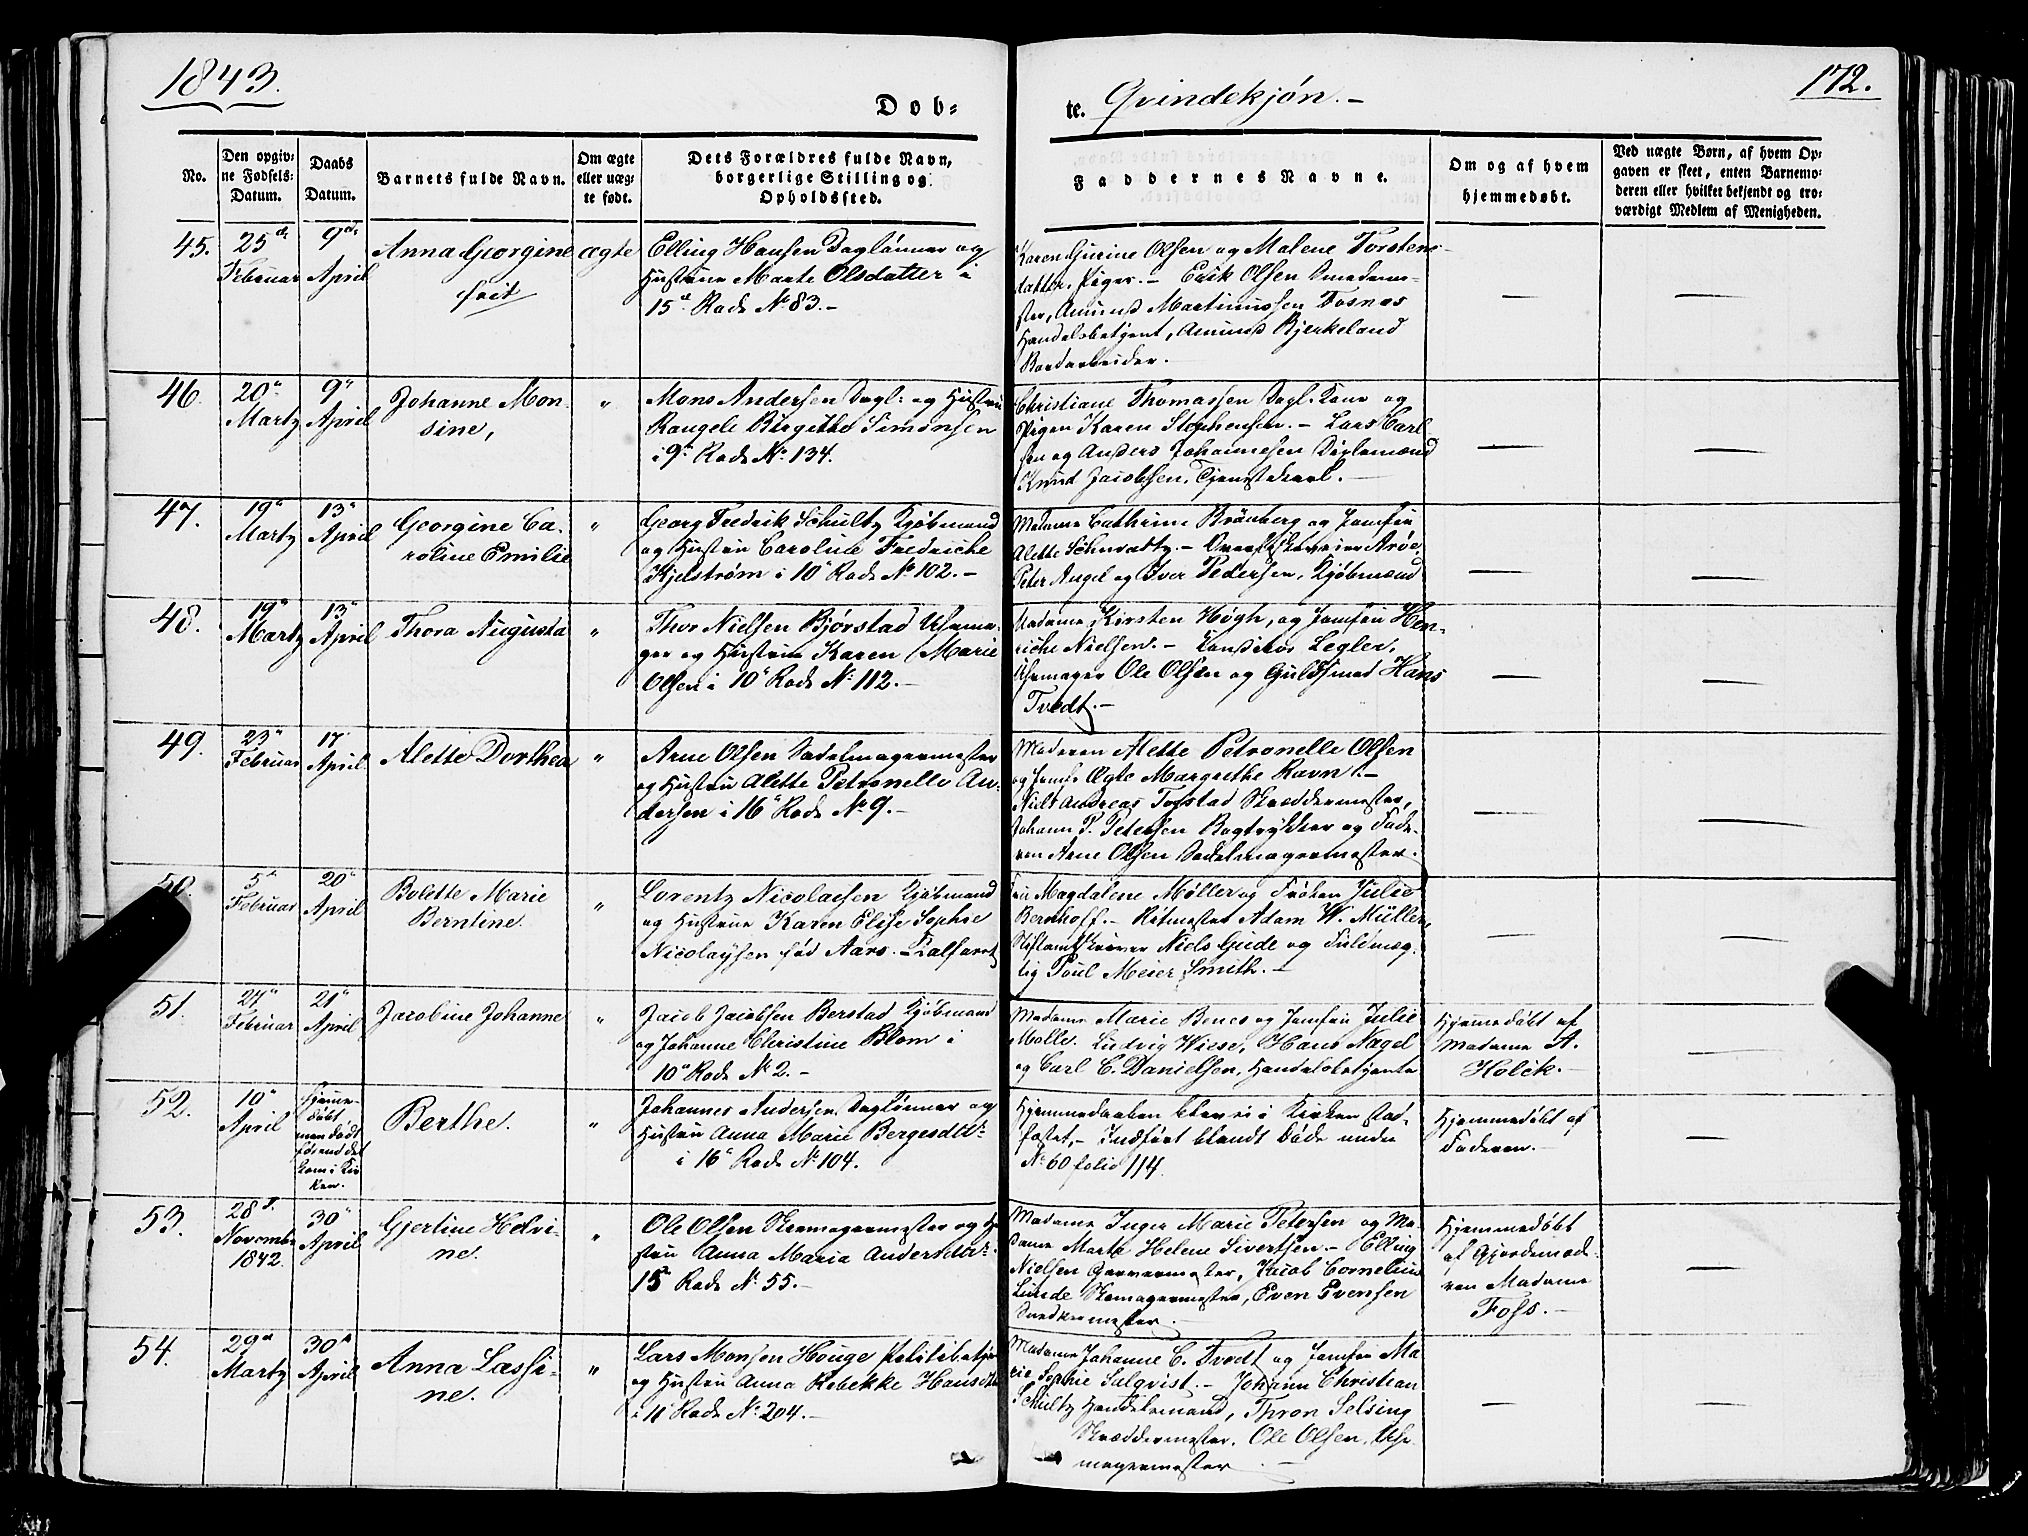 1843.
172.
Dob=
te. Qvindekjøn. -
No.
Den opgiv=
ne Fødsels=
Datum.
Daabs
Datum.
Barnets fulde Navn.
Om ægte
eller uæg=
te født.
Dets Forældres fulde Navn,
borgerlige Stilling og
Opholdssted.
Faddernes Navne.
Om og af hvem
hjemmedøbt.
Ved uægte Børn, af hvem Op=
gaven er skeet, enten Barnemo=
deren eller hvilket bekjendt og tro=
værdigt Medlem af Menigheden.
45.
25de
Februar
9de
April
Anna Georgine
frit
ægte
Elling Hansen Daglønner og
Hustrue Marte Olsdatter i
15de Rode No 83. -
Karen Gurine Olsen og Malene Torstens
datter, Piger. - Erik Olsen Smedeme-
ster, Amund Martinussen Fosnæs
Handelsbetjent, Amund Bjerkeland
Bordarbeider.
46.
20"
Marty
9"
April
Johanne Mon
sine,
"
Mons Andersen Dagl: og Hustru
Raugele Birgithe Simonsen
i 9" Rode No 134.
Christiane Thomassen Dagl. Kone og
Pigen Karen Stephensen. - Lars Carl-
sen og Anders Johannesen Daglømænd
Knud Jacobsen, Tjenestekarl. -
47.
19"
Marty
13"
April
Georgine Ca-
roline Emilie
"
Georg Fredrik Schultz Kjøbmand
og Hustru Caroline Fredriche
Kjelstrøm i 10" Rode No 102. -
Madame Cathrine Brønberg og Jomfru
Alette
Peter Angel og Iver Pedersen, Kjøbmænd
48.
19"
Marty
13"
April
Thora Augusta
"
Thor Nielsen Bjørstad Uhrma-
ger og Hustrue Karen Marie
Olsen i 10" Rode No 112. -
Madame Kirsten Høgh, og Jomfru Hen-
riche Nielsen. - Legler,
Uhrmager Ole Olsen og Guldsmed Hans
Tvedt. -
49.
23"
Februar
17"
April
Alette Dorthea
"
Arne Olsen Sadelmagermester
og Hustru Alette Petronelle An-
dersen i 16" Rode No 9. -
Moderen Alette Petronelle Olsen
og Jomfr. Ægte Margrethe Ravn. -
Nils Andreas Torstad Skræddermester,
Johann P. Petersen Bogtrykker og Fade-
ren Arne Olsen Sadelmagermester.
50.
5"
Februar
20"
April
Bolette Marie
Berntine.
"
Lorentz Nicolaysen Kjøbmand
og Hustrue Karen Elise Sophie
Nicolaysen fød Aars. - Kalfaret
Fru Magdalene Møller og Frøken Julie
Bernhoff. - Ritmester Adam W. Müller,
Stiftamtskriver Niels Gude og Fuldmæg-
tig Poul Meier Smith. -
51.
24"
Februar
21"
April
Jacobine Johanne
"
Jacob Jacobsen Berstad Kjøbmand
og Johanne Christine Blom i
10" Rode No 2. -
Madame Marie Benes og Jomfru Julie
Molle. Ludvig Wiese, Hans Nagel
og Carl C. Danielsen, Handelsbetjente
Hjemmedøbt af
Madame A.
Holck. -
52.
10"
April
Hjemme-
døbt,
men døde
førend det
kom i Kir
ken.
Berthe.
"
Johannes Andersen, Dagløner og
Hustru Anna Marie Bergesdtr
i 16" Rode No 104.
Hjemmedaaben blev ei i Kirken stad-
fæstet, - Indført blandt Døde under
No 60 folio 114.
Hjemmedøbt af
Faderen. -
53.
28de
Novembr
1842.
30"
April
Gjertine Helvi-
ne.
"
Ole Olsen Skomagermester og Hu
stru Anna Maria Andersdtr.
15" Rode No 55. -
Madame Inger Marie Petersen og Ma-
dame Marte Helene Sivertsen. - Elling
Nielsen Garvermester, Jacob Cornelius
Lunde Skomagermester, Even Evensen
Snedkermester.
Hjemmedøbt
af Gjordemod-
ren Madame
Foss. -
54.
29de
Marty
30de
April
Anna Lassi-
ne.
"
Lars Monsen Houge Politibetjen
og Hustru Anna Rebekke Hansdtr
i 11" Rode No 204. -
Madame Johanne C. Tvedt og Jomfru Ma
rie Sophie Salqvist. - Johann Christian
Schultz Handelsmand, Thron Selsing
Skræddermester, Ole Olsen, Uhr-
magermester. -